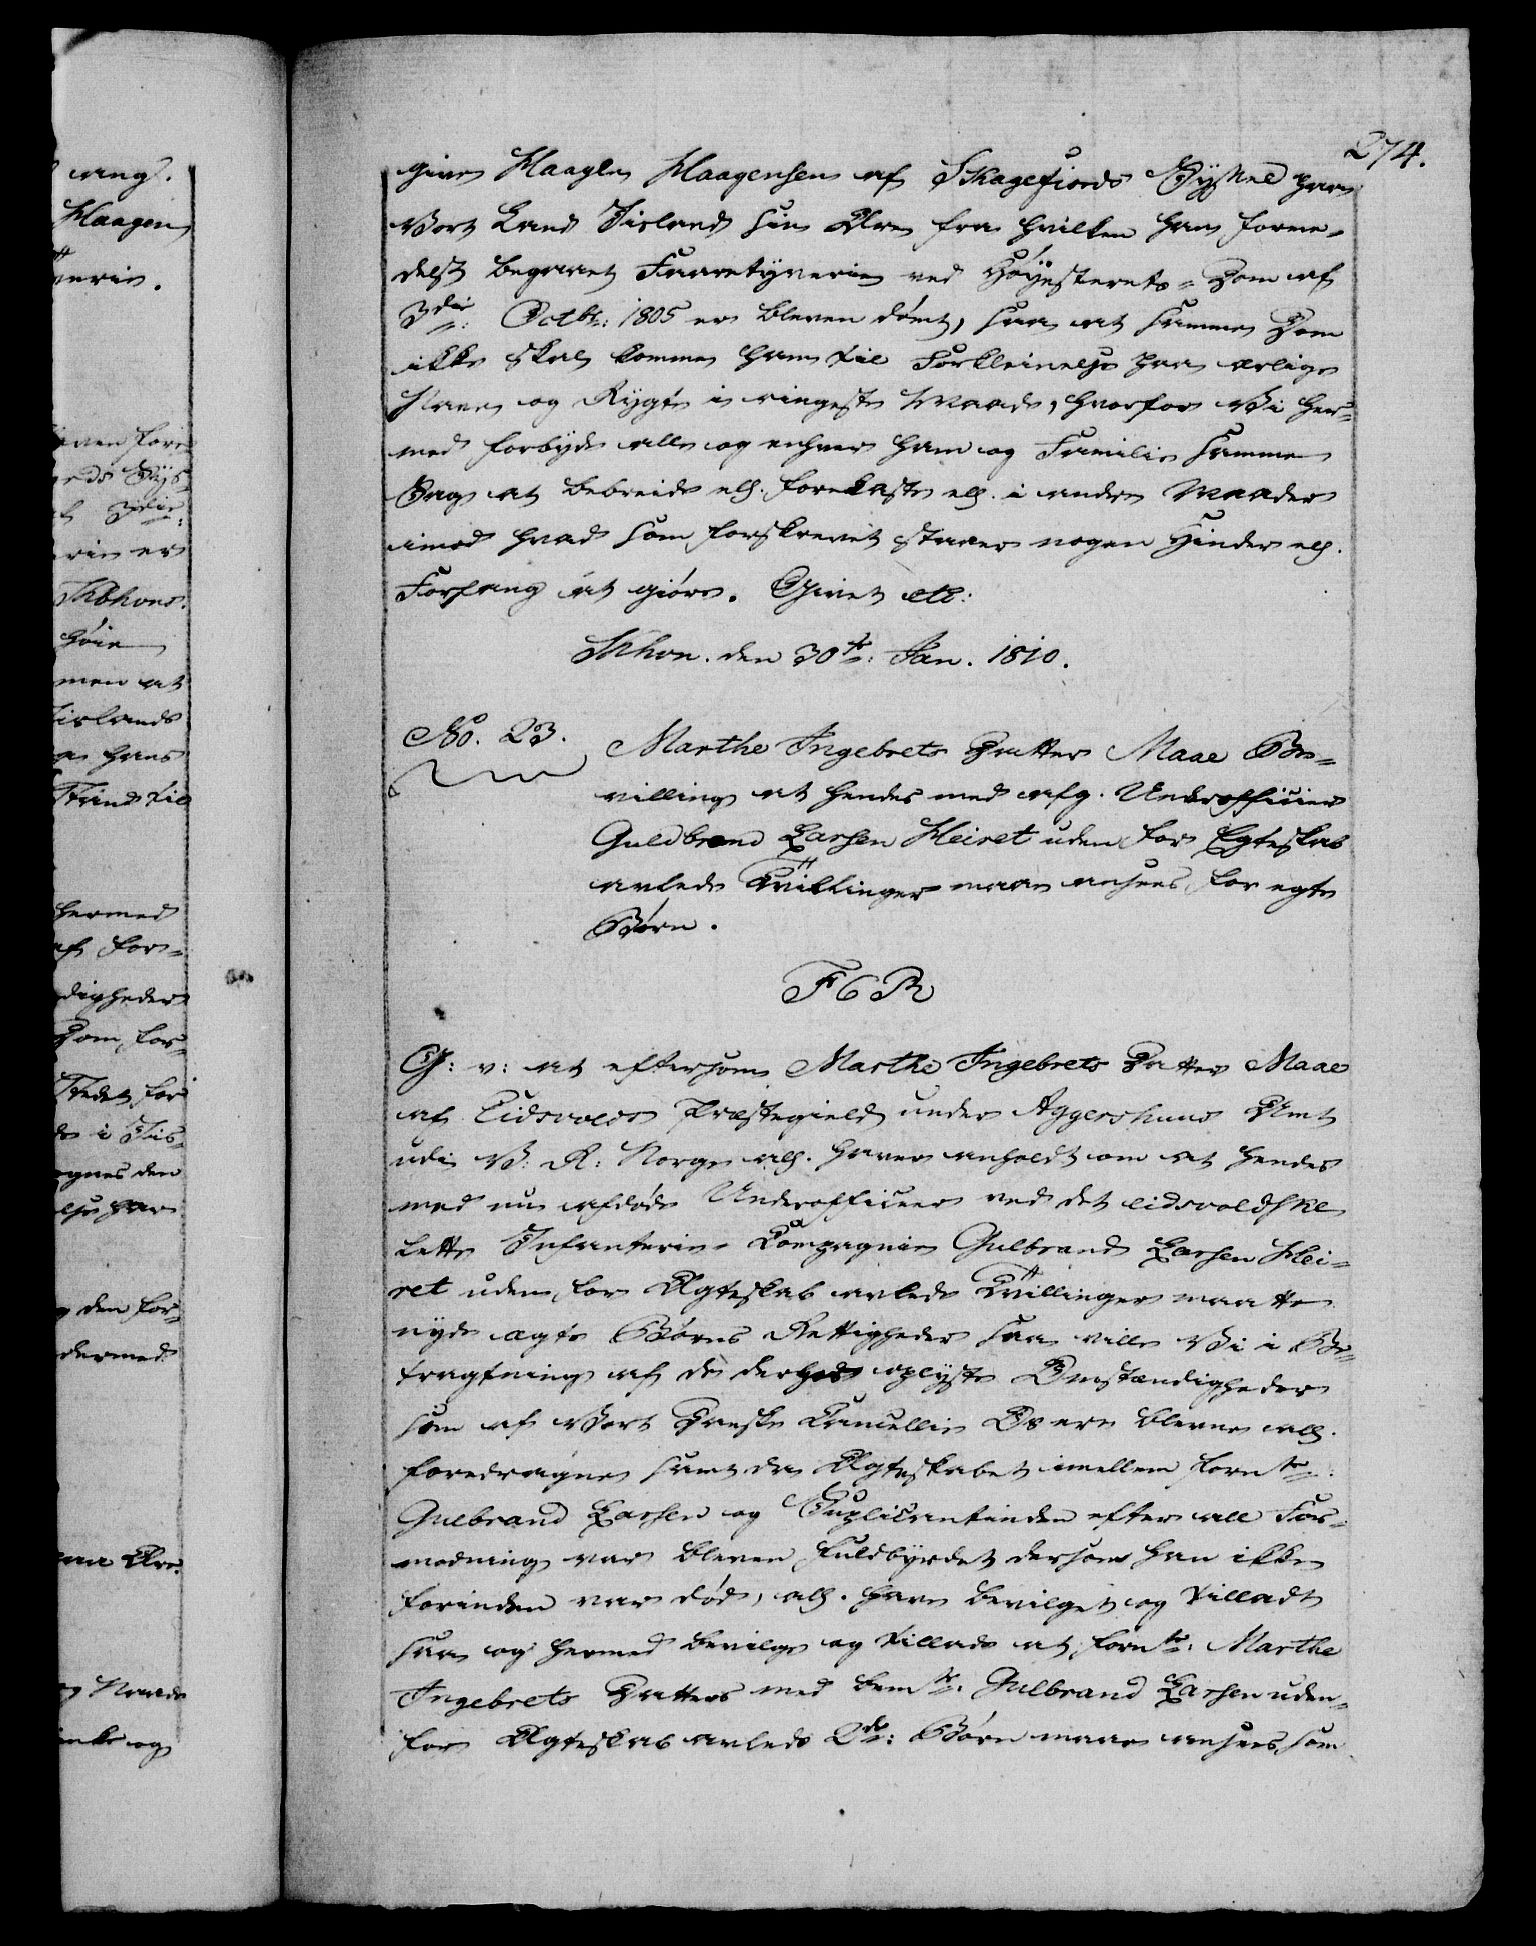 274.
give Haagen Haagensen af Skagefiords Syssel paa
Vort Land Iisland sin Ære fra hvilken han forme-
delst begaaet Faaretyverie ved Høyesterets-Dom af
3die Octbr: 1805 er bleven dømt, saa at samme Dom
ikke skal komme ham til Forkleinelse paa ærlige
Navn og Rygte i ringeste Maade, hvorfor Vi her-
med forbyde alle og enhver ham og Familie samme
Sag at bebreide ell. forekaste ell. i andre Maader
imod hvad som forskrevet staaer nogen Hinder ell.
Forfang at giøre. Givet etc:
Khvn. den 30te: Jan. 1810.
No. 23.
Marthe Ingebrets Datter Maae Be-
villing at hendes med afg. Underofficier
Guldbrand Larsen Heiret uden for Egteskab
avlede Tvillinger maae ansees for egte
Børn.
F6R
G: v: at eftersom Marthe Ingebrets Datter Maae
af Eidsvolds Præstegield under Aggershuus Amt
udi V: R: Norge all. haver anholdt om at hendes
med nu afdøde Underofficeer ved det eidsvoldske
lette Infanterie-Compagnie Gulbrand Larsen Hei-
ret uden for Ægteskab avlede Tvillinger maatte
nyde ægte Børns Rettigheder saa ville Vi i Be-
tragtning af de derhos oplyste Omstændigheder
som af Vort Danske Cancellie Os ere blevne all.
foredragne samt da Ægteskabet imellem fornte:
Gulbrand Larsen og Suplicantinden efter all For-
modning var bleven fuldbyrdet dersom han ikke
forinden var død, all. have bevilget og tilladt
saa og hermed bevilge og tillade at fornte: Marthe
Ingebrets Datters med bemte: Gulbrand Larsen uden-
for Ægteskab avlede 2de: Børn maae ansees som